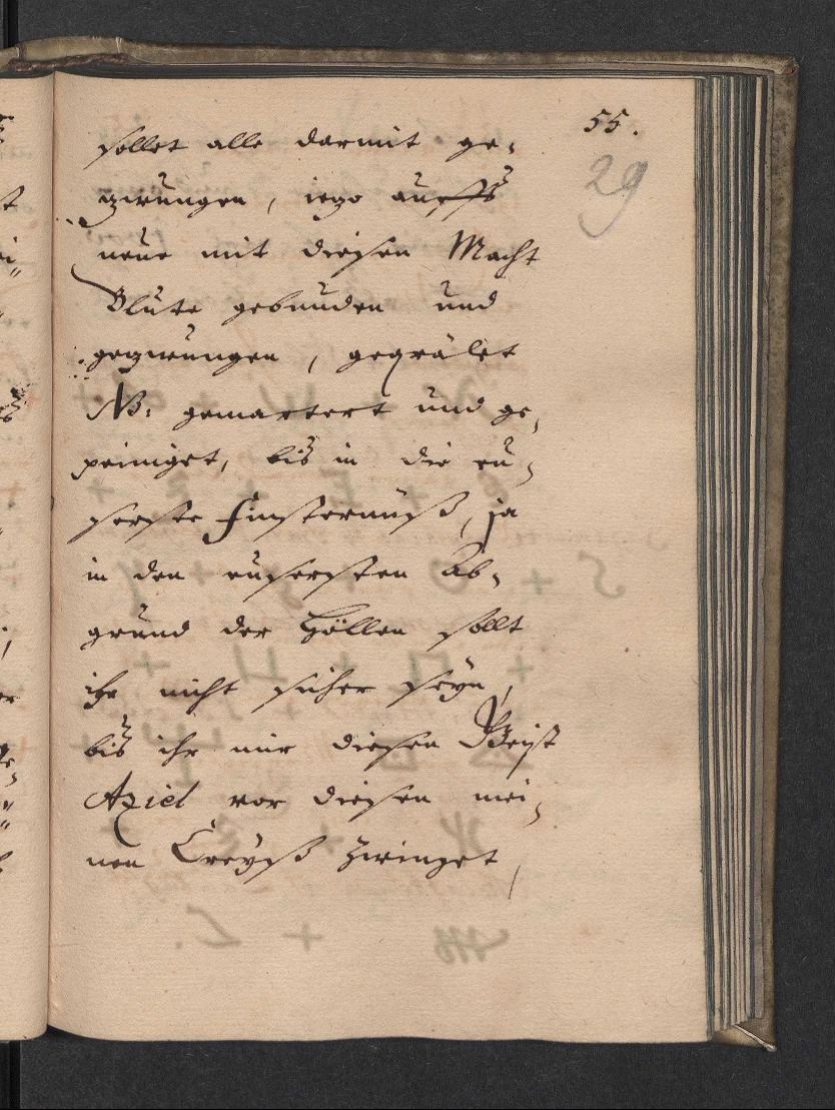 55.
29
sollet alle darmit ge-
zwungen, iezo auffs
neue mit diesen Macht
Blute gebunden und
gezwungen, gequälet
NB: gemartert und ge-
peiniget, biß in die eu-
serste Finsternüß, ja
in den eusersten Ab-
grund der Höllen sollt
ihr nicht sicher seyn,
biß ihr mir diesen Geist
Aziel vor diesen mei-
nen Creyß zwinget,